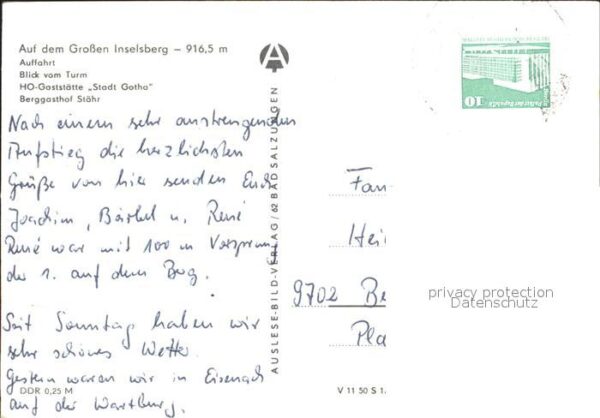 Auf dem Großen Inselsberg – 916,5 m
Auffahrt
Blick vom Turm
HO-Gaststätte „Stadt Gotha“
Berggasthof Stöhr
Nach einem sehr anstrengenden
Aufstieg die herzlichsten
Grüße von hier senden Euch
Joachim, Bärbel u. René
René war mit 100 m Vorsprung
der 1. auf dem Berg.
Seit Sonntag haben wir
sehr schönes Wetter.
Gestern waren wir in Eisenach
auf der Wartburg.
DDR 0,25 M
AUSLESE-BILD-VERLAG / 62 BAD SALZUNGEN
V 11 50 S 1.
10
Fam
Hei
9702 Be
Pla
privacy protection
Datenschutz